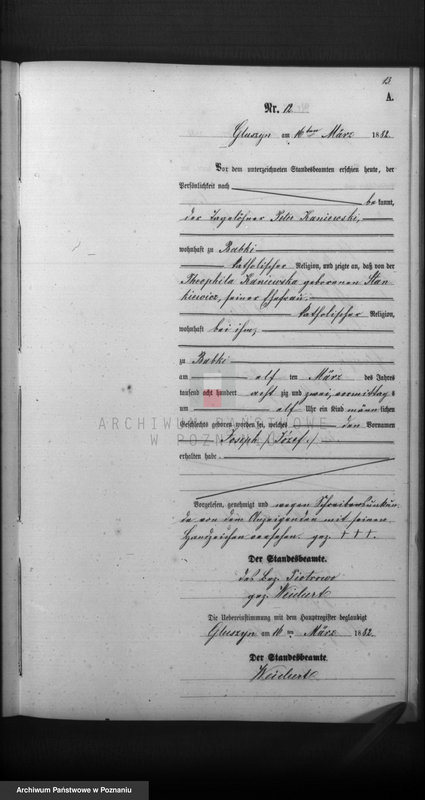 13
A.
Nr. 12
Gluszyn am 16ten März 1882.
Vor dem unterzeichneten Standesbeamten erschien heute, der
Persönlichkeit nach
bekannt,
der Tagelöhner Peter Kaniewski,
wohnhaft zu Babki
katholischer Religion, und zeigte an, daß von der
Theophila Kaniewska geborenen Stan-
kiewicz, seiner Ehefrau,
katholischer Religion,
wohnhaft bei ihm,
zu Babki
am elf ten März des Jahres
tausend acht hundert acht zig und zwei, vormittags
um elf Uhr ein Kind männlichen
Geschlechts geboren worden sei, welches den Vornamen
Joseph /:Józef:/
erhalten habe.
Vorgelesen, genehmigt und wegen Schreibensunkun-
de von dem Anzeigenden mit seinem
Handzeichen versehen. gez. † † †.
Der Standesbeamte.
des Bez. Piotrowo
gez. Weichert
Die Uebereinstimmung mit dem Hauptregister beglaubigt
Gluszyn am 16ten März 1882.
Der Standesbeamte.
Weichert
ARCHIWUM PAŃSTWOWE
W POZNANIU
Archiwum Państwowe w Poznaniu